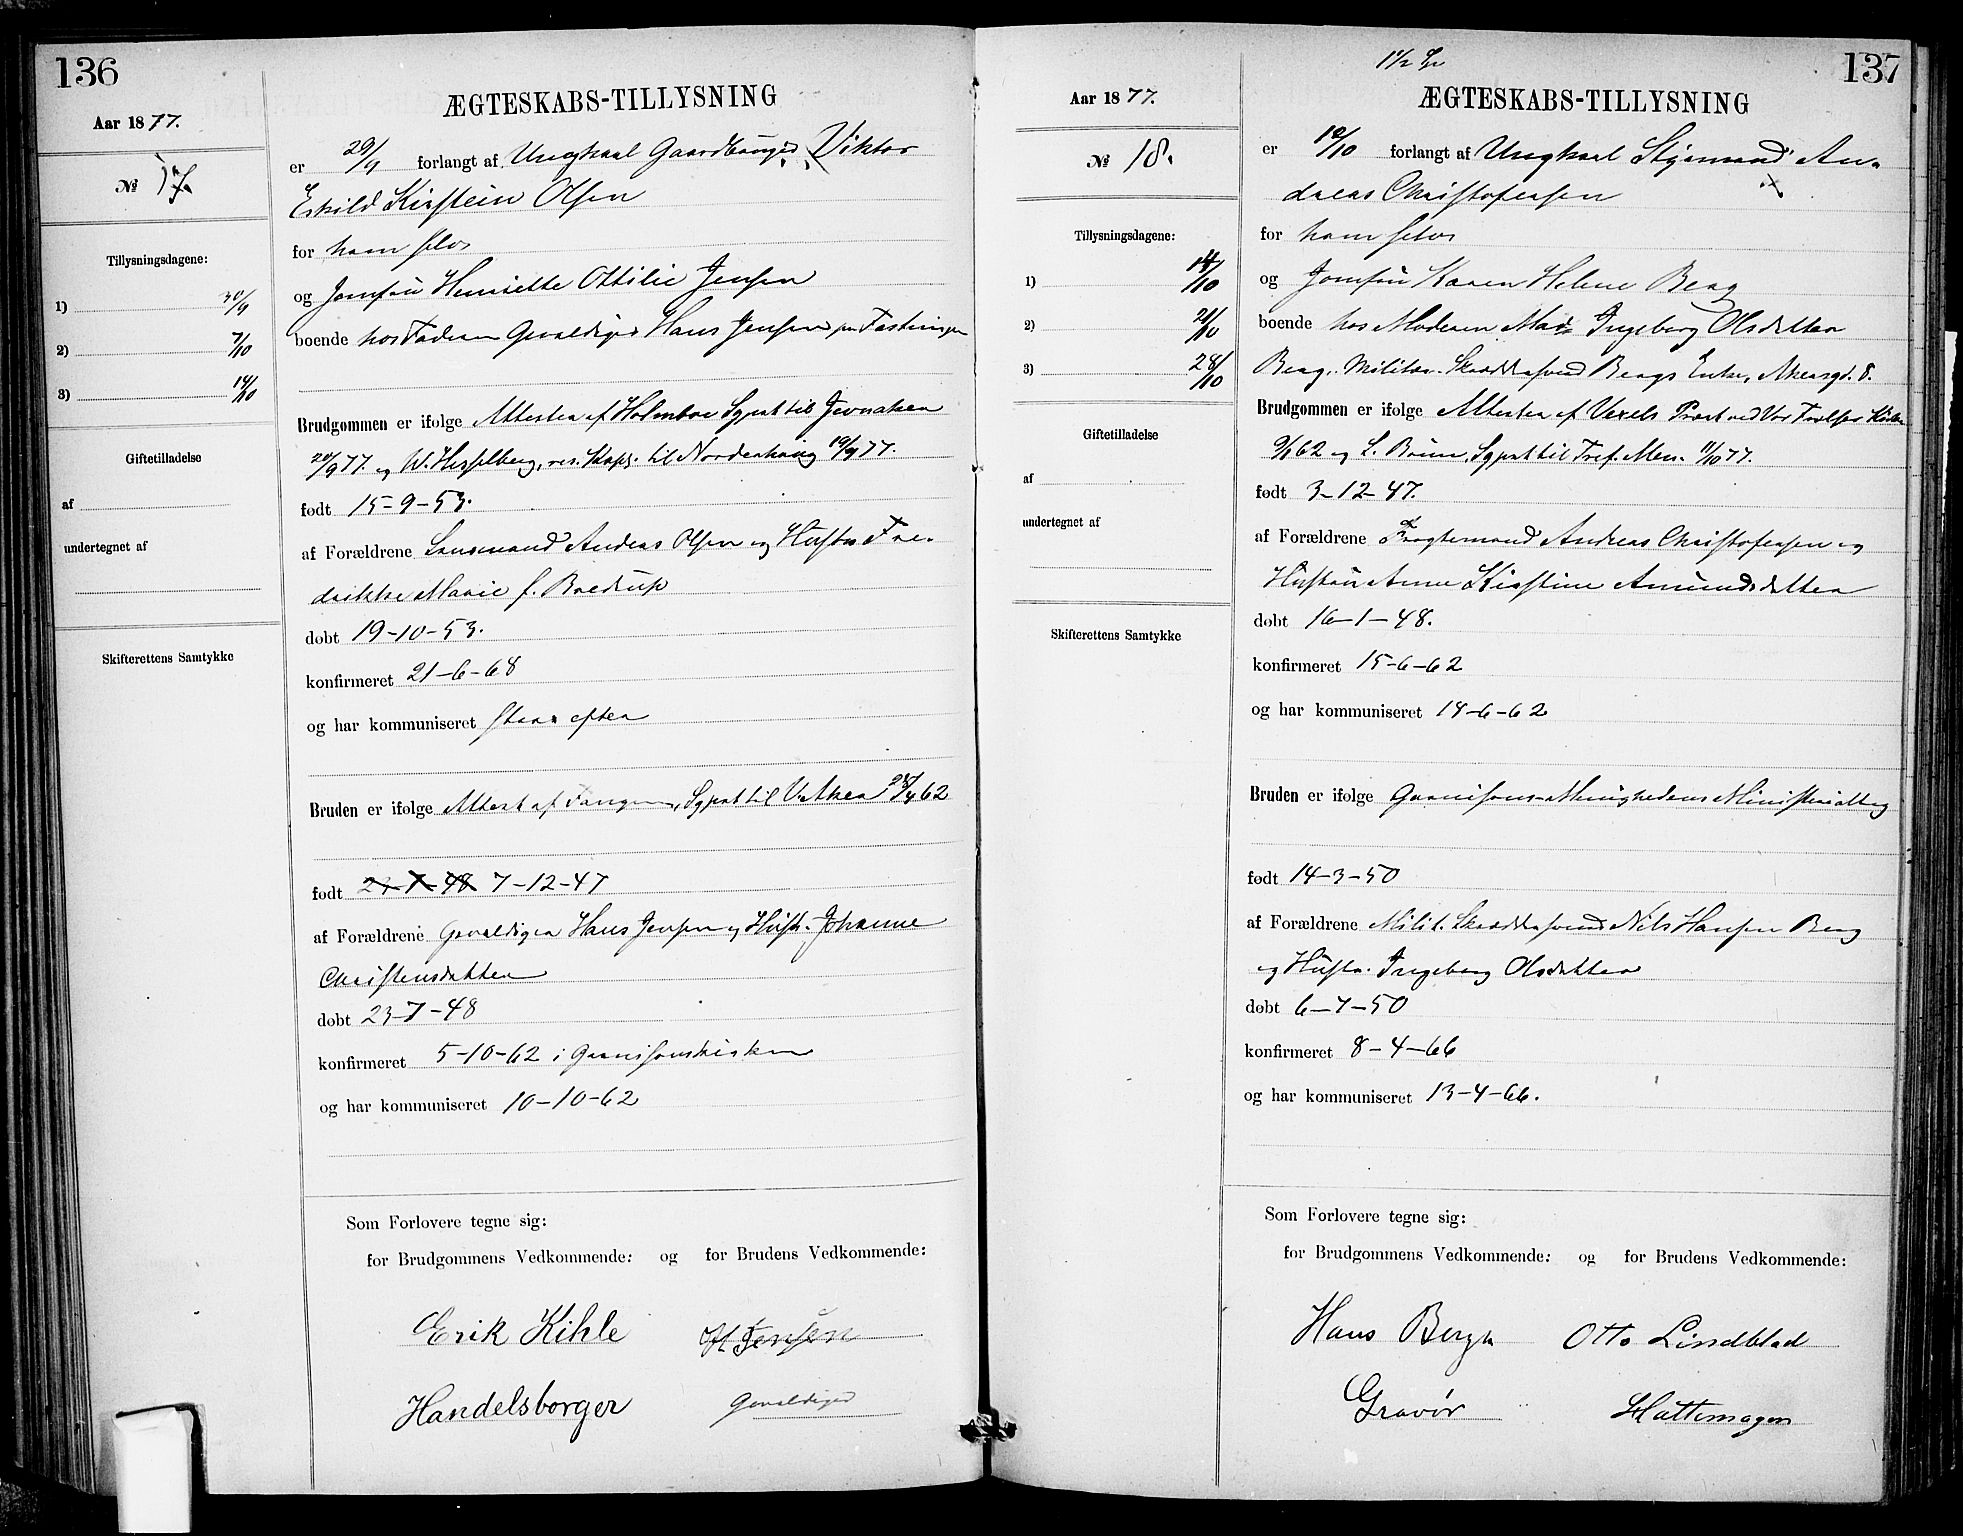 136
Aar 1877.
№ 17.
Tillysningsdagene:
1) 30/9
2) 7/10
3) 14/10
Giftetilladelse
af
undertegnet af
Skifterettens Samtykke
ÆGTESKABS-TILLYSNING
er 29/9 forlangt af Ungkarl Gaardbruger Viktor
Eskild Kirstein Olsen
for ham selv
og Jomfru Henriette Ottilie Jensen
boende hos Faderen Gevaldiger Hans Jensen paa Fæstningen
Brudgommen er ifølge Attester af Holmboe Sgprst til Jevnaker
20/9 77. og W. Hesselberg, res. Kap. til Norderhoug 19/9 77.
født 15-9-53.
af Forældrene Lensmand Anders Olsen og Hustru Fre-
drikke Marie f. Bredrup
døbt 19-10-53.
konfirmeret 21-6-68
og har kommuniseret strax efter
Bruden er ifølge Attest af Fangen, Sgprst til V. Aker 28/4 62
født 23-7-48 7-12-47
af Forældrene Gevaldiger Hans Jensen og Hustr. Johanne
Christensdatter
døbt 23-7-48
konfirmeret 5-10-62 i Garnisonskirken
og har kommuniseret 10-10-62
Som Forlovere tegne sig:
for Brudgommens Vedkommende: og for Brudens Vedkommende:
Erik Kihle H Jensen
Handelsborger Gevaldiger
1 1/2
137
Aar 1877.
№ 18.
Tillysningsdagene:
1) 14/10
2) 21/10
3) 28/10
Giftetilladelse
af
undertegnet af
Skifterettens Samtykke
ÆGTESKABS-TILLYSNING
er 12/10 forlangt af Ungkarl Styrmand An-
dreas Christofersen
for ham selv
og Jomfru Karen Helene Berg
boende hos Moderen Mad. Ingeborg Olsdatter
Berg, Militær-Skræddersvend Bergs Enke, Akersgd. 8.
Brudgommen er ifølge Attester af Wexels Præst ved Vor Frelsers Kirke
9/6 62 og L. Bruun, Sgprst til Tref. Men. 11/10 77.
født 3-12-47.
af Forældrene Fragtemand Andreas Christofersen og
Hustru Anne Kirstine Amundsdatter
døbt 16-1-48.
konfirmeret 15-6-62
og har kommuniseret 18-6-62
Bruden er ifølge Garnisons-Menighedens Ministerialbog
født 14-3-50
af Forældrene Milit. Skræddersvend Nils Hansen Berg
og Hustr. Ingeborg Olsdatter
døbt 6-7-50
konfirmeret 8-4-66
og har kommuniseret 13-4-66.
Som Forlovere tegne sig:
for Brudgommens Vedkommende: og for Brudens Vedkommende:
Hans Bergh Otto Lindblad
Gravør Hattemager